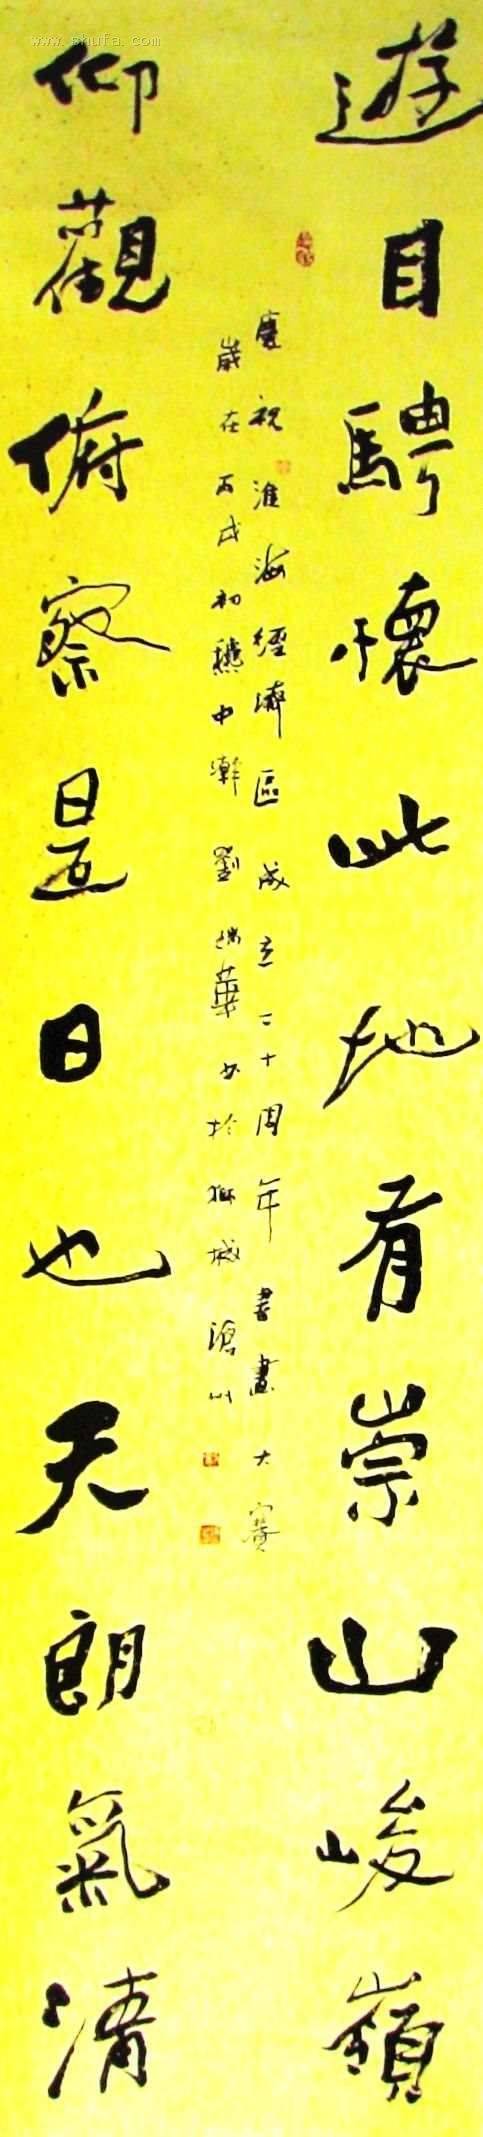 遊目騁懷此地有崇山峻嶺
慶祝淮海經濟區成立二十周年書畫大賽
歲在丙戌初穐中澣劉瑞華书於獅城滄州
仰觀俯察是日也天朗氣清
www.shufa.com